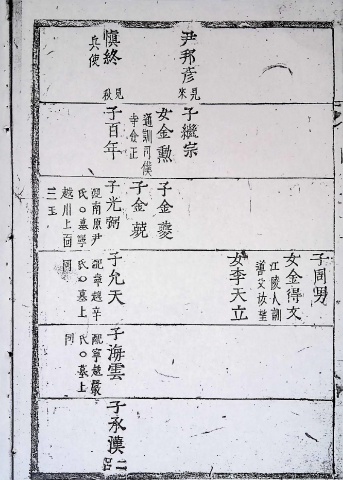 尹邦彦
見
來
愼終
兵使
見
秋
子繼宗
女金勲
通訓司僕
寺僉正
子百年
子金夔
子金
子光弼
配南原尹
氏○墓寧
越川上面
三玉
子周男
女金得文
江陵人訓
導父汝
女李天立
子允天
配寧越辛
氏○墓上
同
子海雲
配寧越嚴
氏○墓上
同
子承漢
二